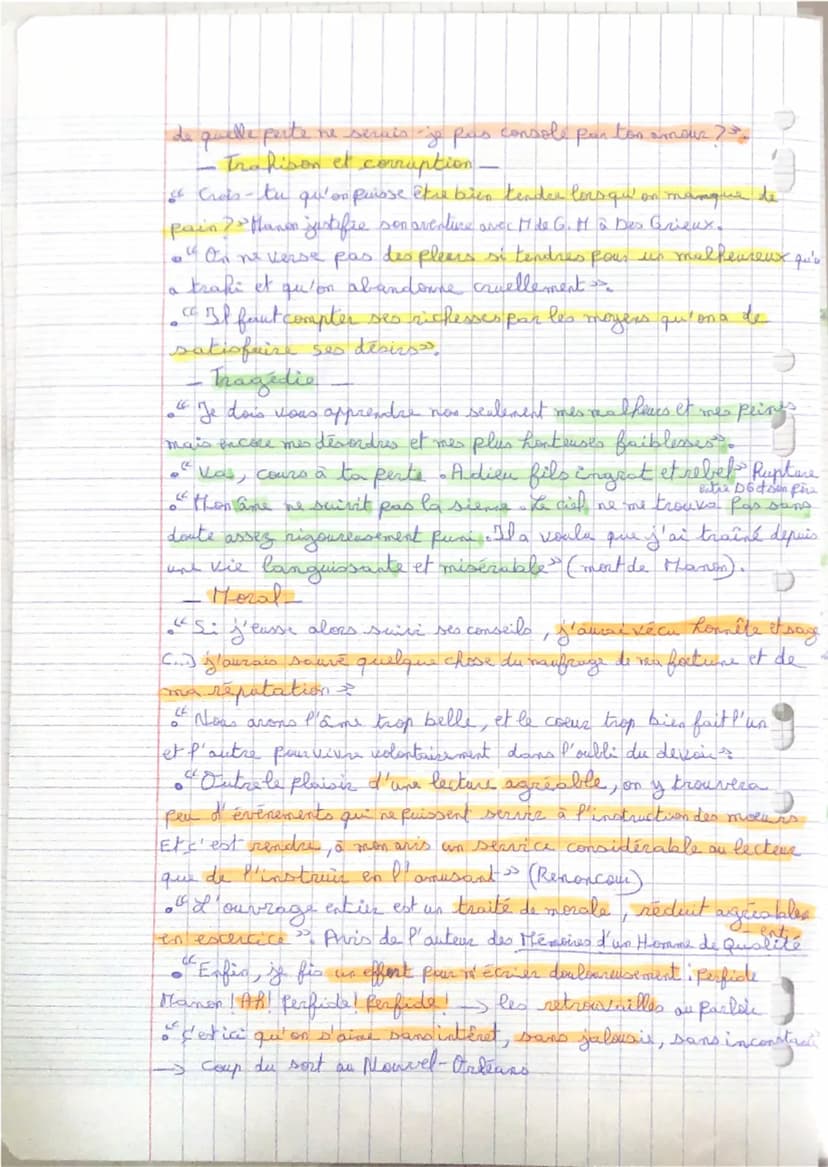 de quelle perte ne serais-je pas consolé par ton amour ? ».
— Trahison et corruption —
• " Crois-tu qu'on puisse être bien tendre lorsqu'on manque de
pain ? » Manon justifie son aventure avec M de G. M à Des Grieux.
• " On ne verse pas des pleurs si tendres pour un malheureux qu'on
a trahi et qu'on abandonne cruellement ».
• " Il faut compter ses richesses par les moyens qu'on a de
satisfaire ses désirs ».
— Tragédie —
• " Je dois vous apprendre non seulement mes malheurs et mes peines
mais encore mes désordres et mes plus honteuses faiblesses ».
• " Va, cours à ta perte. Adieu fils ingrat et rebel » Rupture
entre DG et son père
• " Mon âme ne suivit pas la sienne. Le ciel ne me trouva pas sans
doute assez rigoureusement puni. Il a voulu que j'ai traîné depuis
une vie languissante et misérable » (mort de Manon).
— Moral —
• " Si j'eusse alors suivi ses conseils, j'aurai vécu honnête et sage
(...) j'aurais sauvé quelque chose du naufrage de ma fortune et de
ma réputation »
" Nous avons l'âme trop belle, et le coeur trop bien fait l'un
et l'autre pour vivre volontairement dans l'oubli du devoir »
• " Outre le plaisir d'une lecture agréable, on y trouvera
peu d'événements qui ne puissent servir à l'instruction des moeurs
Et c'est rendre, à mon avis un service considérable au lecteur
que de l'instruire en l'amusant » (Renoncour)
• " L'ouvrage entier est un traité de morale, réduit agréable
ment
en escercice ». Avis de l'auteur des Mémoires d'un Homme de Qualité
• " Enfin, je fis un effort pour m'écrier douloureusement : perfide
Manon ! Ah ! Perfide ! Perfide ! —> les retrouvailles au parloir
• " C'est ici qu'on s'aime sans intêret, sans jalousie, sans inconstance
—> Coup du sort au Nouvel-Orléans